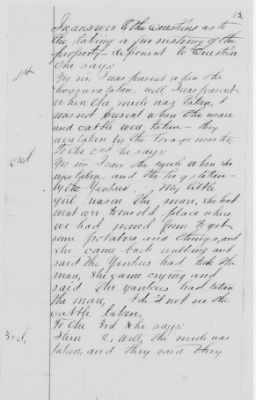 13
In answer to the questions as to
the taking or furnishing of the
property - deponent to Question
One says
1st Yes sir I was present when the
hogs was taken. well I was present
when the mule was taken, I
was not present when the mare
and cattle were taken - they
was taken by the forage master,
2nd To the 2nd she says
Yes sir I saw the mule when she
was taken. and the hogs taken -
by the Yankees. My little
girl was on the mare, she had
went over to our old place where
we had moved from to get
some potatoes and things, and
she came back walking and
said the Yankees had took the
mare, she came crying and
said the yankees had taken
the mare, I did not see the
cattle taken,
3rd, To the 3rd she says
Item 2, Well, the mule was
taken, and they said they